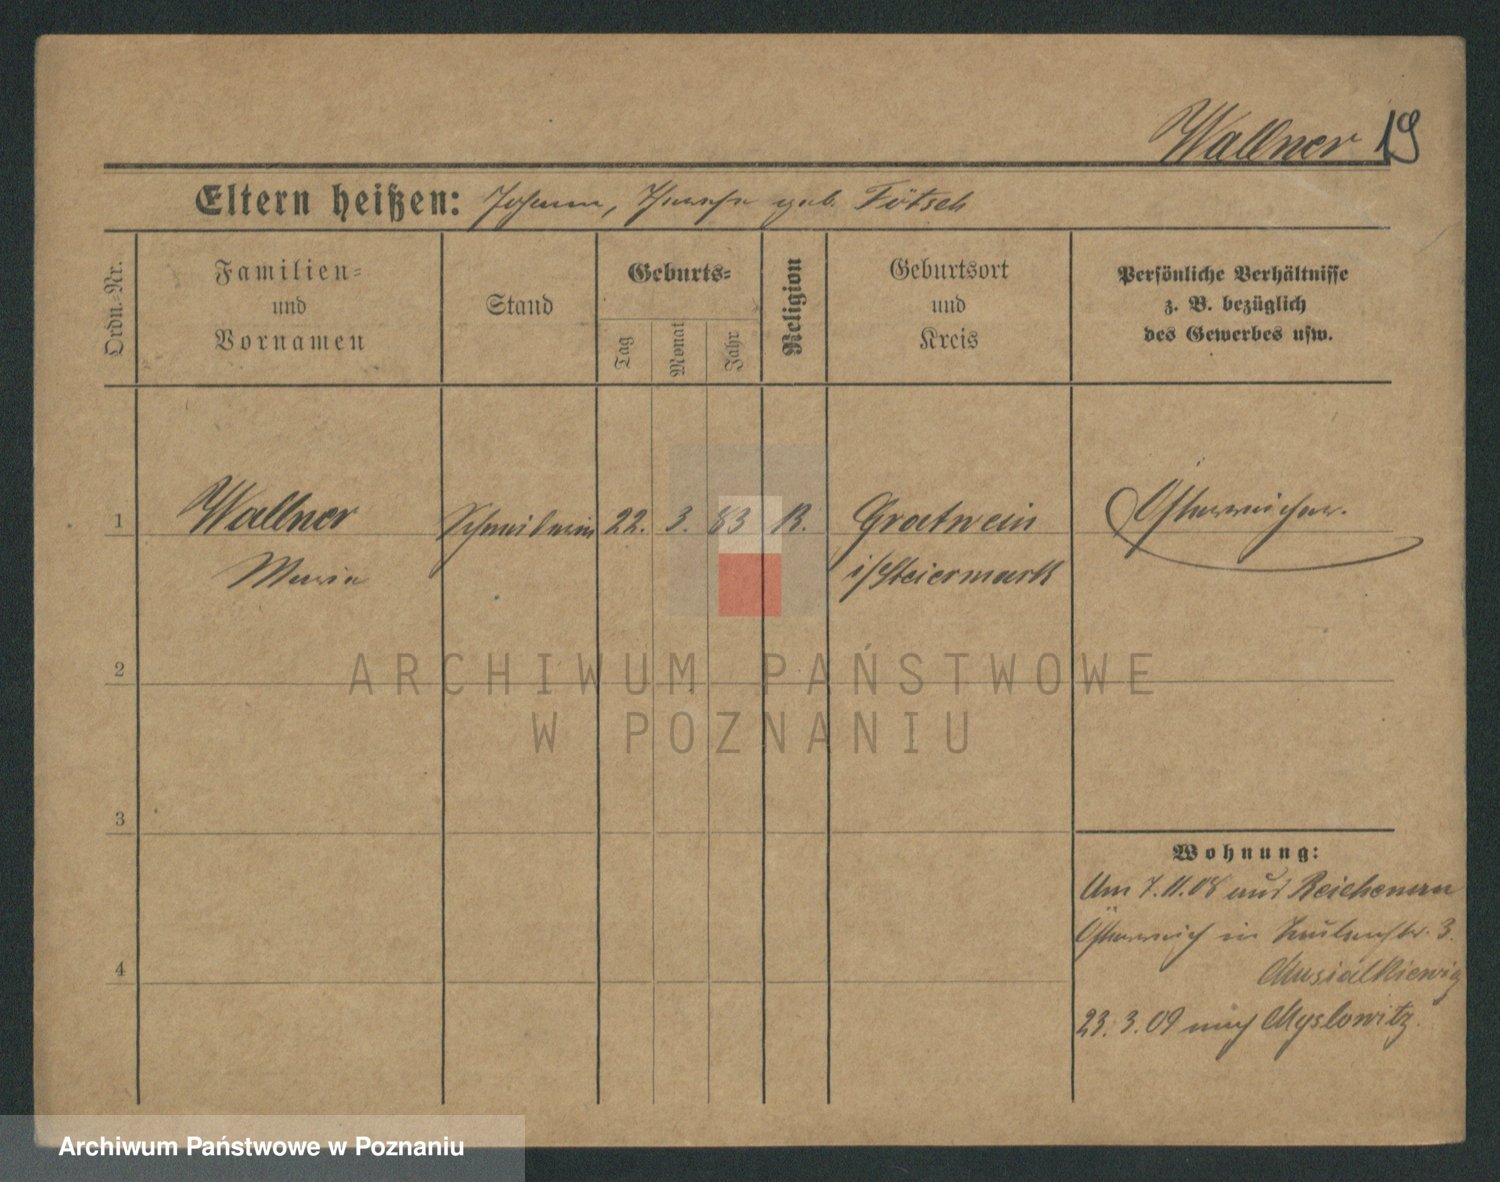 Wallner 19
Eltern heißen: Johann, Theresia geb. Fötsch
Ordn.-Nr.
Familien-
und
Vornamen
Stand
Geburts-
Tag
Monat
Jahr
Religion
Geburtsort
und
Kreis
Persönliche Verhältnisse
z. B. bezüglich
des Gewerbes usw.
1 Wallner Schneiderin 22. 3. 83 K. Gratwein Österreicher.
Marie i/Steiermark
2
ARCHIWUM PAŃSTWOWE
W POZNANIU
3
Wohnung:
Am 7.11.08 aus Reichenau
Österreich in 3.
Musialkiewicz
4
23.3.09 nach Myslowitz.
Archiwum Państwowe w Poznaniu